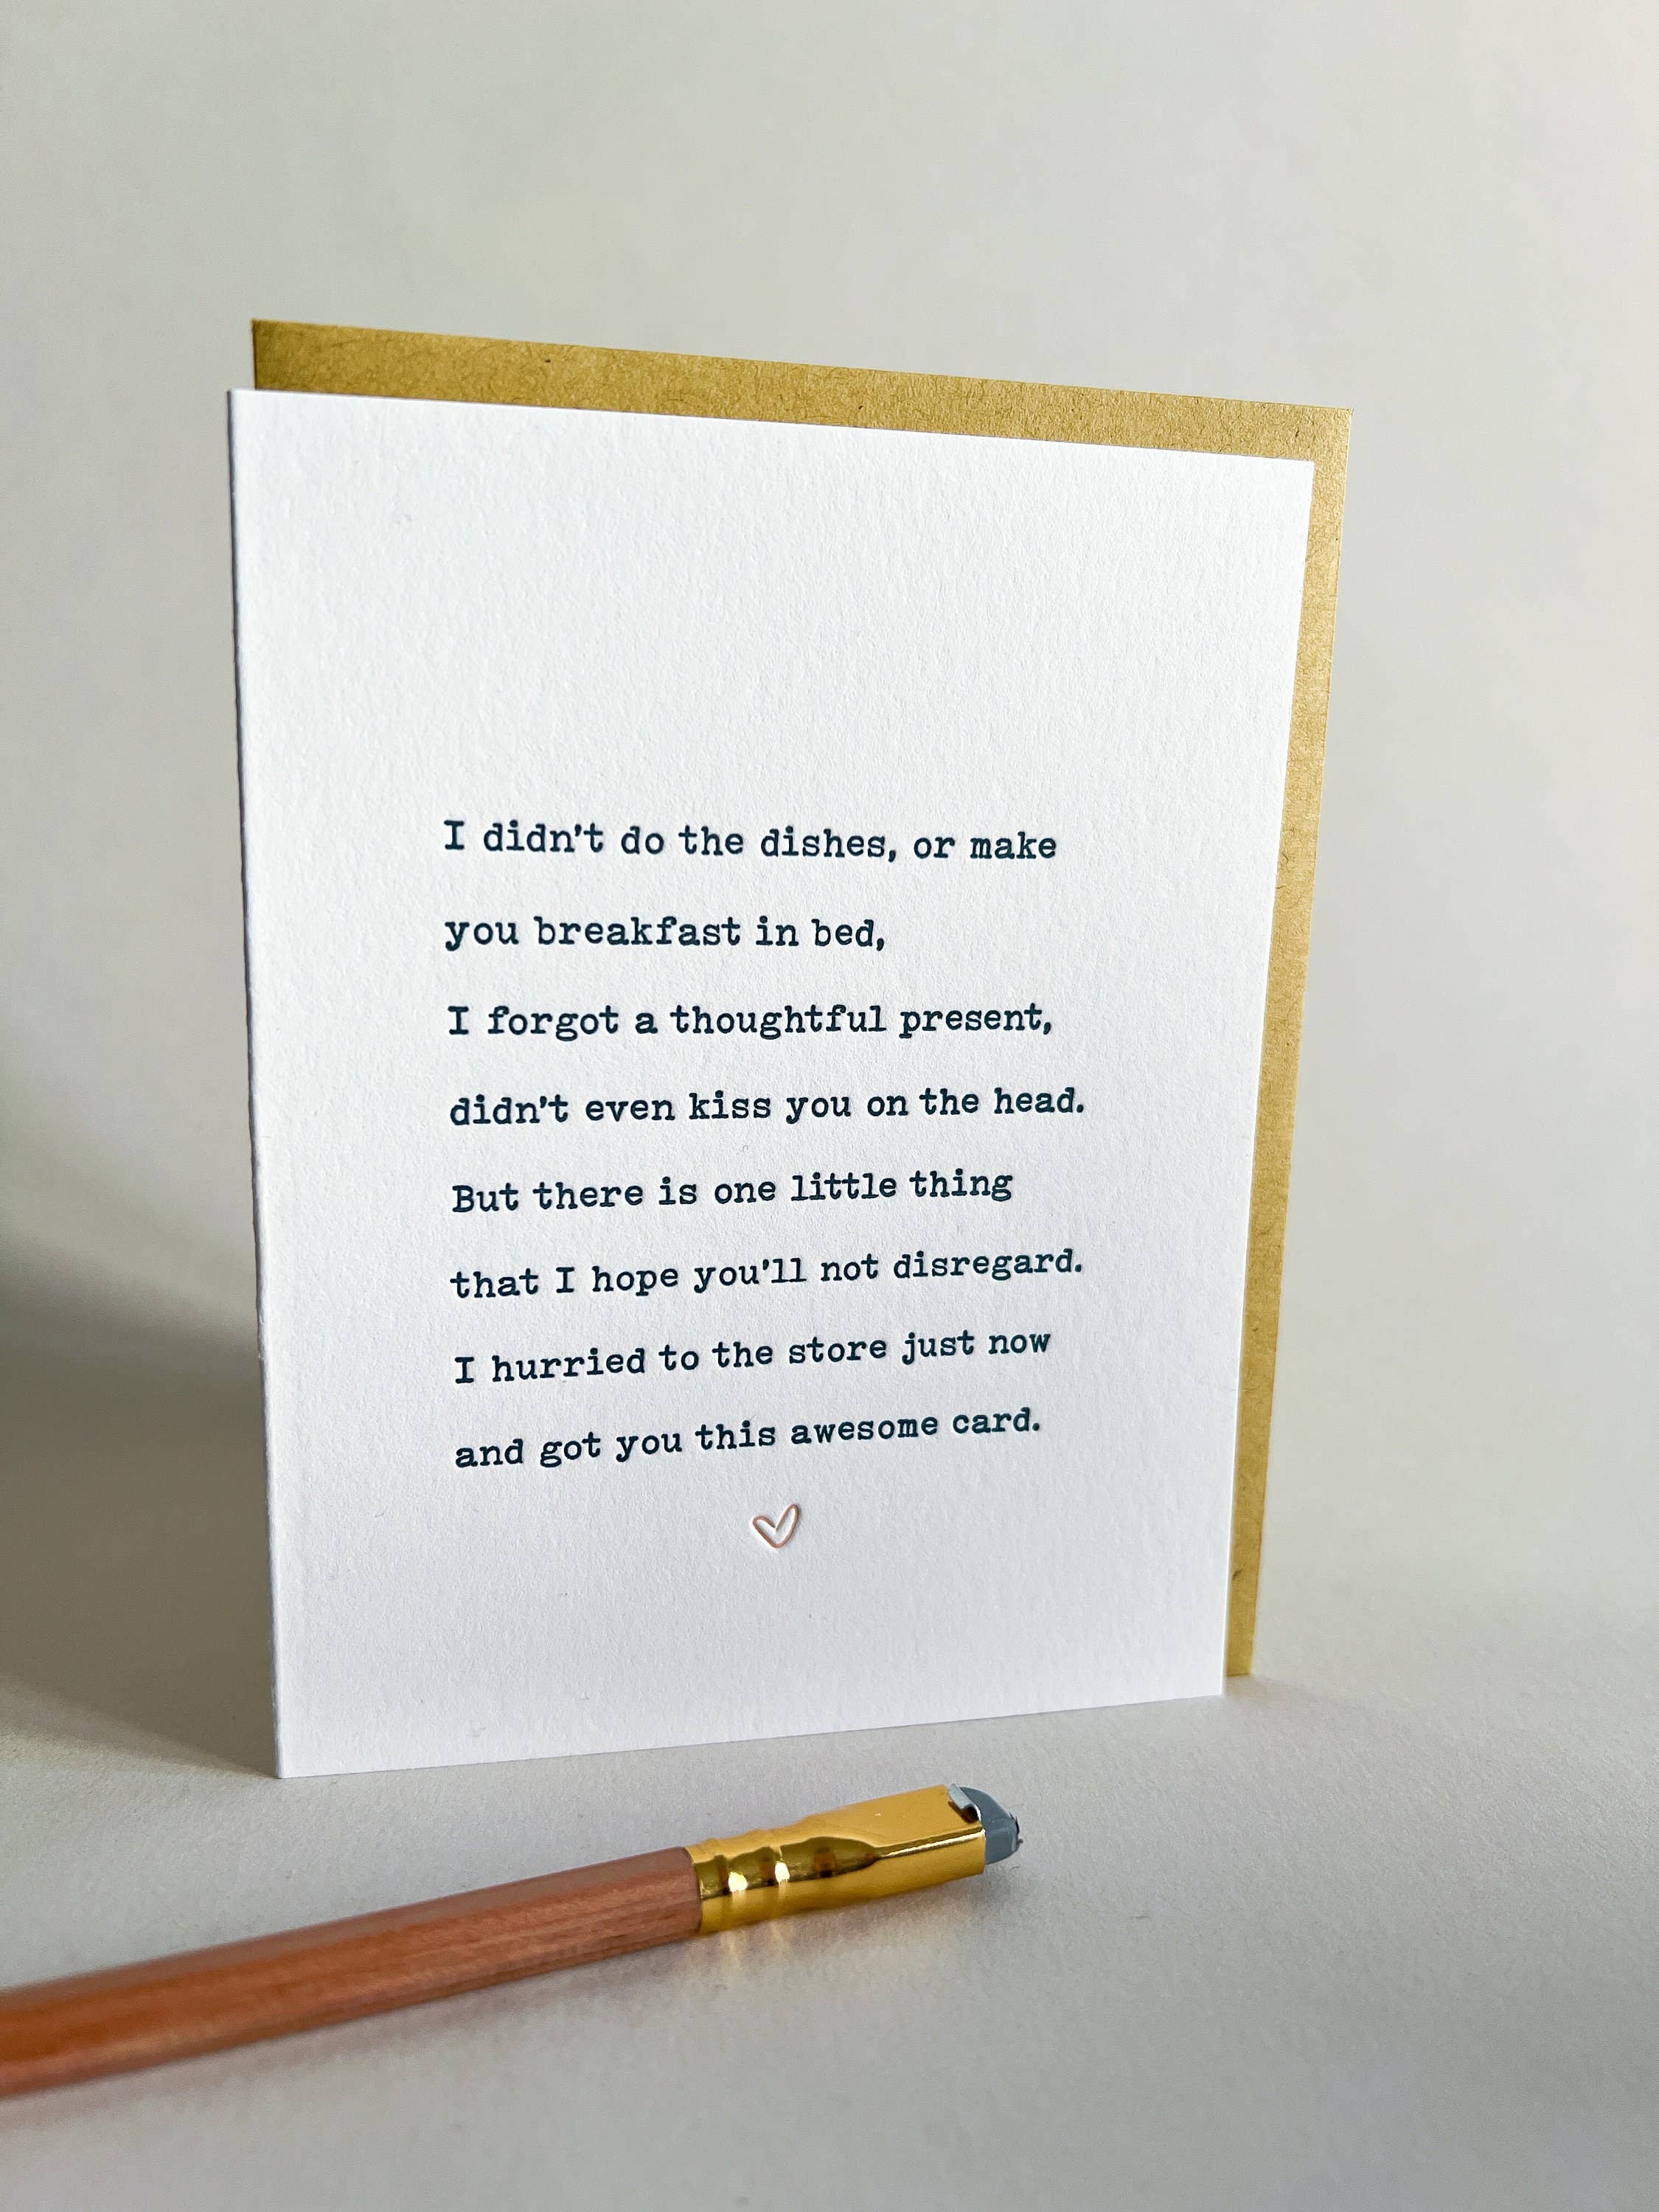 I didn't do the dishes, or make
you breakfast in bed,
I forgot a thoughtful present,
didn't even kiss you on the head.
But there is one little thing
that I hope you'll not disregard.
I hurried to the store just now
and got you this awesome card.